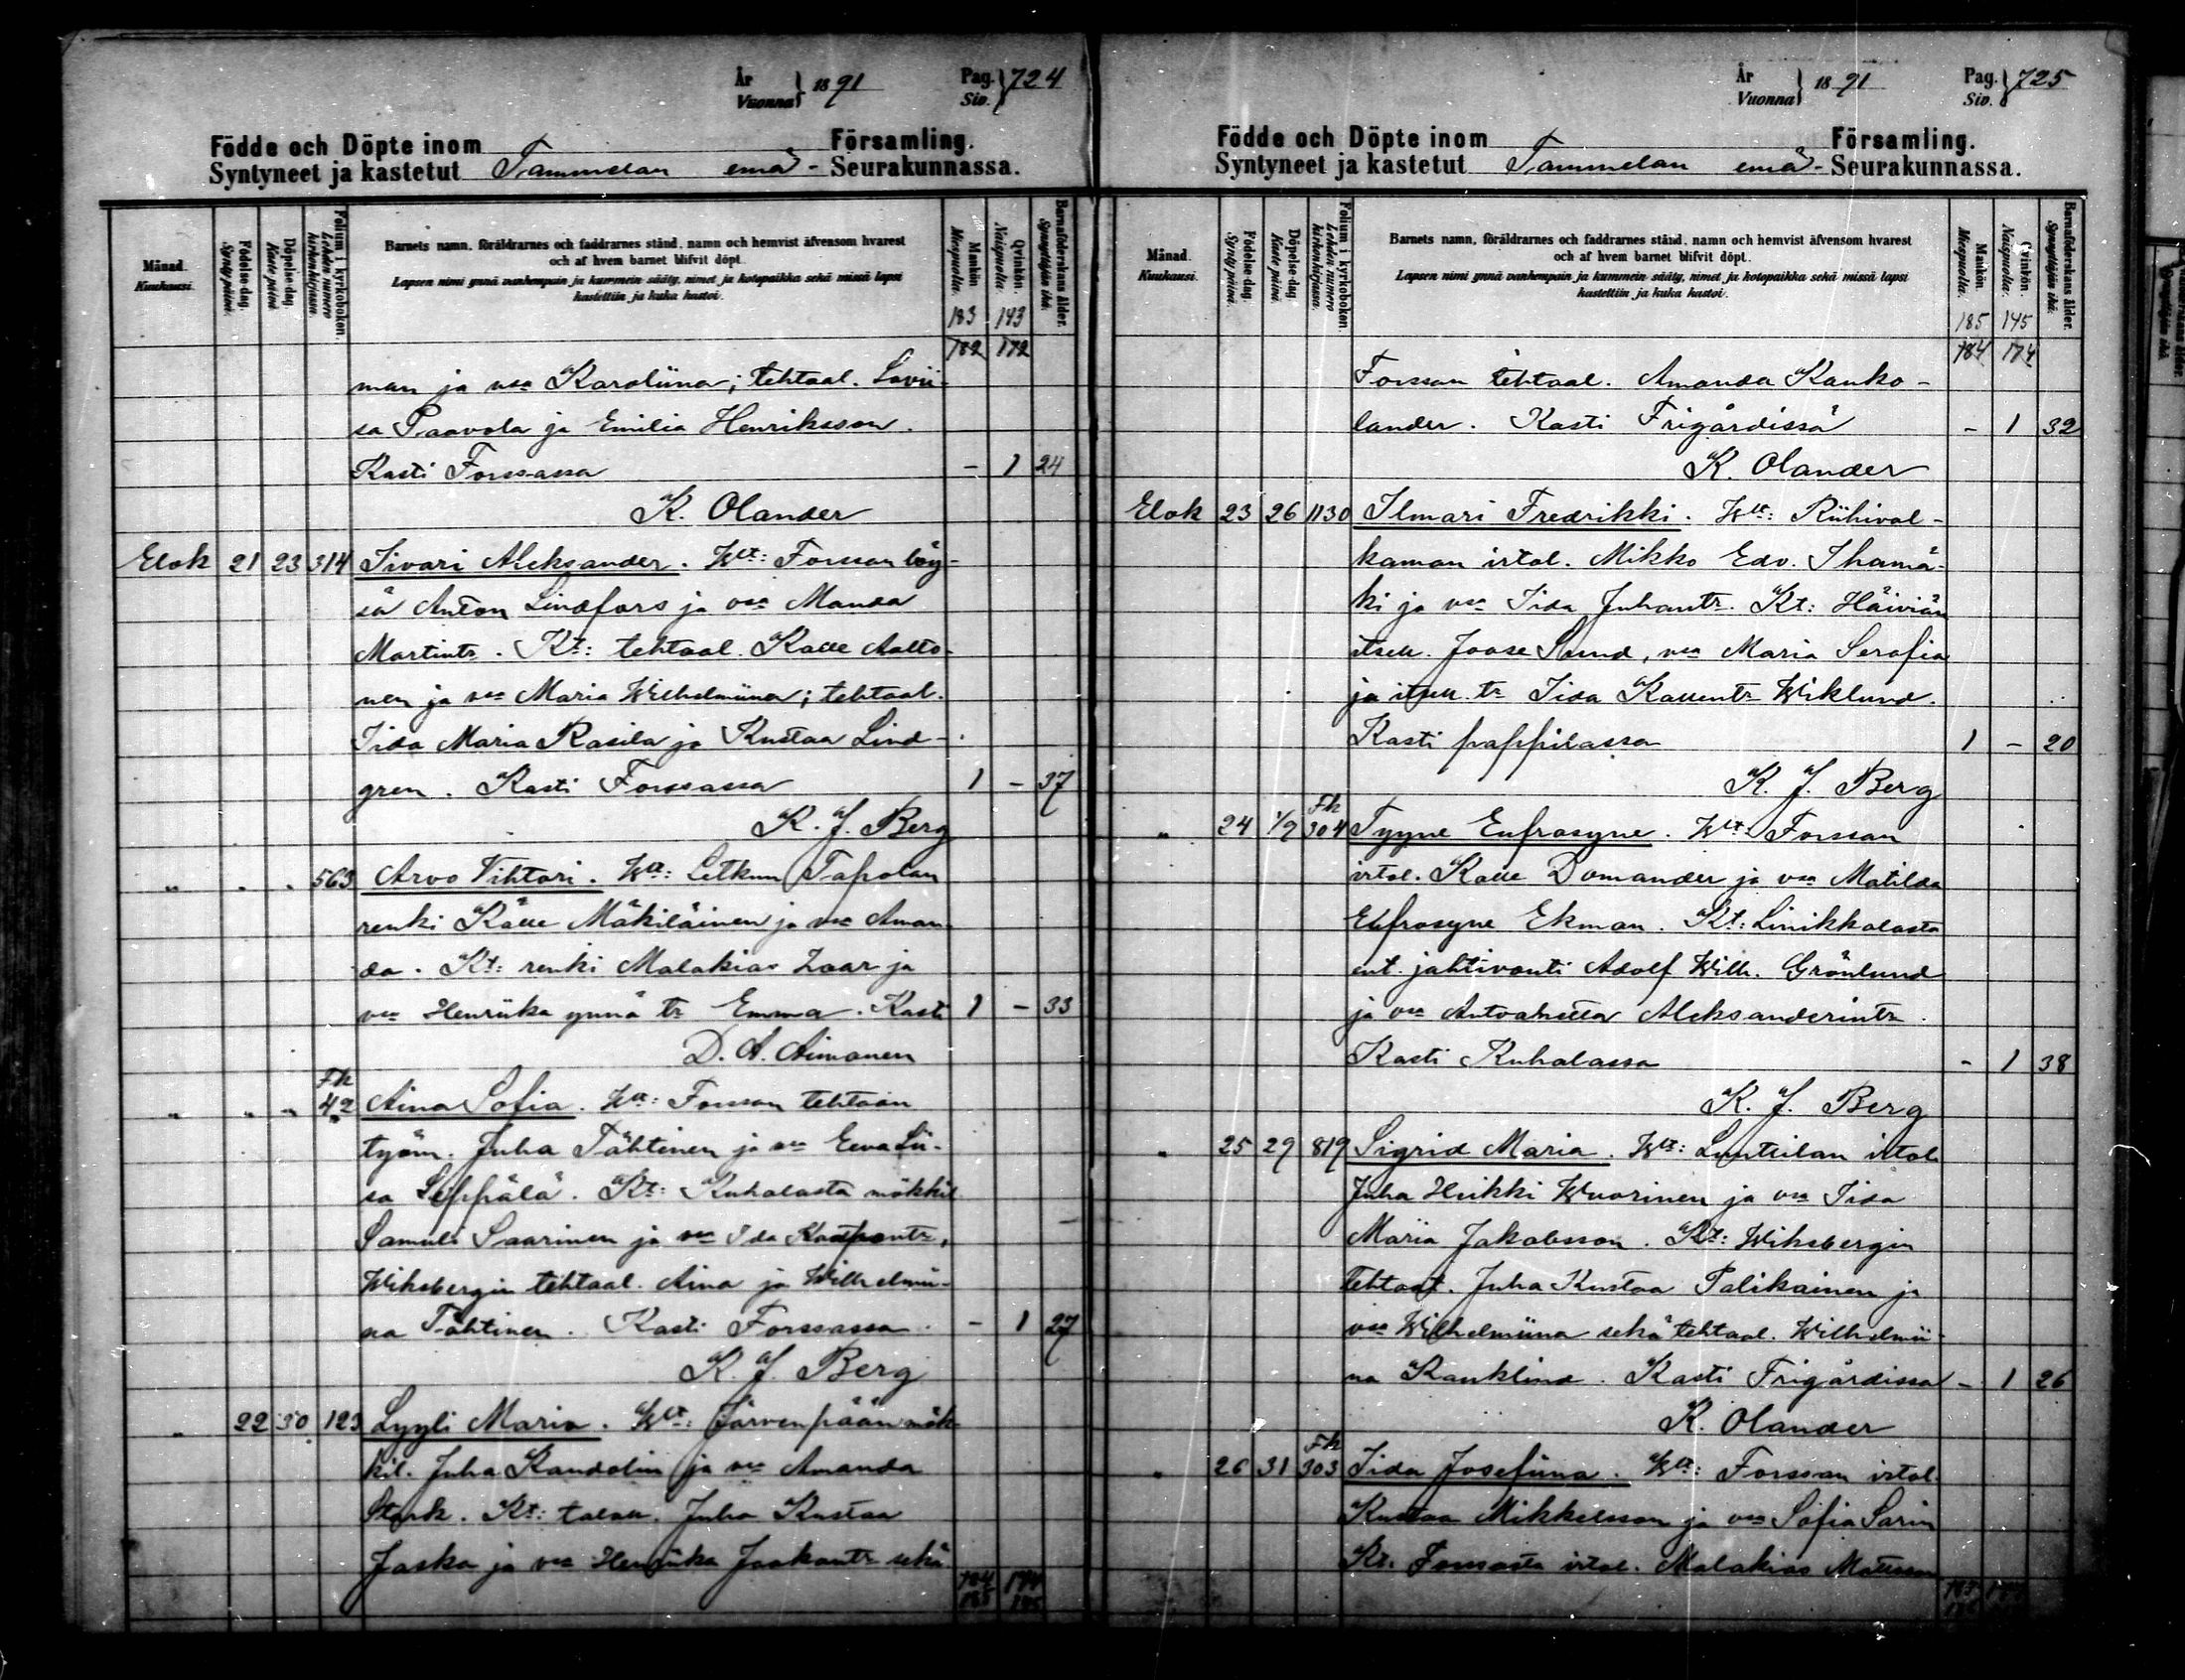 År
Vuonna } 1891
Pag.
Siv. } 724
Födde och Döpte inom Församling.
Syntyneet ja kastetut Tammelan emä- Seurakunnassa.
Månad.
Kuukausi.
Födelse dag.
Synty päivä.
Döpelse dag.
Kaste päivä.
Folium i kyrkoboken.
Lehden numero kirkonkirjassa.
Barnets namn, föräldrarnes och faddrarnes stånd, namn och hemvist äfvensom hvarest
och af hvem barnet blifvit döpt.
Lapsen nimi ynnä vanhempain ja kummein sääty, nimet ja kotopaikka sekä missä lapsi
kastettiin ja kuka kastoi.
Mankön.
Miespuolia.
Qvinkön.
Naispuolia.
Barnaföderskans ålder.
Synnyttäjän ikä.
183 143
182 172
man ja vaa Karoliina; tehtaal. Lovii-
sa Paavola ja Emilia Henriksson.
Kasti Forssassa - 1 24
K. Olander
Elok 21 23 314 Iivari Aleksander. Wat: Forssan löy-
sä Anton Lindfors ja vaa Manda
Martintr. Kt: tehtaal. Kalle Aalto-
nen ja vaa Maria Wilhelmiina; tehtaal.
Iida Maria Rasila ja Kustaa Lind-
gren. Kasti Forssassa 1 - 37
K. J. Berg
" " " 563 Arvo Vihtori. Wat: Letkun Tapolan
renki Kalle Mäkiläinen ja vaa Aman-
da. Kt: renki Malakias Zaar ja
vaa Henriika ynnä tr Emma. Kasti 1 - 33
D. A. Aimonen
" " " Fk 42 Aina Sofia. Wat: Forssan tehtaan
työm. Juha Tähtinen ja vaa Eeva Lii-
sa Seppälä. Kt: Kuhalasta mökkil
Samuli Saarinen ja vaa Ida
Wiksbergin tehtaal. Aina ja Wilhelmii-
na Tähtinen. Kasti Forssassa. - 1 27
K. J. Berg
" 22 30 123 Lyyli Maria. Wat: Järvenpään mök-
kil. Juha Kandolin ja vaa Amanda
Stark. Kt: talol. Juha Kustaa
Jaska ja vaa Henriika Jaakontr sekä
184 174
185 145
År
Vuonna } 1891
Pag.
Siv. } 725
Födde och Döpte inom Församling.
Syntyneet ja kastetut Tammelan emä- Seurakunnassa.
Månad.
Kuukausi.
Födelse dag.
Synty päivä.
Döpelse dag.
Kaste päivä.
Folium i kyrkoboken.
Lehden numero kirkonkirjassa.
Barnets namn, föräldrarnes och faddrarnes stånd, namn och hemvist äfvensom hvarest
och af hvem barnet blifvit döpt.
Lapsen nimi ynnä vanhempain ja kummein sääty, nimet ja kotopaikka sekä missä lapsi
kastettiin ja kuka kastoi.
Mankön.
Miespuolia.
Qvinkön.
Naispuolia.
Barnaföderskans ålder.
Synnyttäjän ikä.
185 145
184 174
Forssan tehtaal. Amanda Kanko-
lander. Kasti Frigårdissä - 1 32
K. Olander
Elok 23 26 1130 Ilmari Fredrikki. Wat: Riihival-
kaman irtol. Mikko Edv. Ihamä-
ki ja vaa Iida Juhantr. Kt: Häiviän
itsell. Joose Sund, vaa Maria Serafia
ja itsell. tr Iida Kallentr Wiklund.
Kasti pappilassa 1 - 20
K. J. Berg
" 24 1/9 Fk 304 Tyyne Eufrosyne. Wat: Forssan
irtol. Kalle Domander ja vaa Matilda
Eufrosyne Ekman. Kt: Linikkalasta
ent. jahtivouti Adolf Wilh. Grönlund
ja vaa Antoahetta Aleksanderintr.
Kasti Kuhalassa - 1 38
K. J. Berg
" 25 29 819 Sigrid Maria. Wat: Luntiilan irtol.
Juha Heikki Wuorinen ja vaa Iida
Maria Jakobsson. Kt: Wiksbergin
tehtaal. Juha Kustaa Talikainen ja
vaa Wilhelmiina sekä tehtaal. Wilhelmii-
na Kanklind. Kasti Frigårdissa - 1 26
K. Olander
" 26 31 Fk 303 Iida Josefiina. Wat: Forssan irtol.
Kustaa Mikkelsson ja vaa Sofia Sarin
Kt: Forssasta irtol. Malakias Mattsson